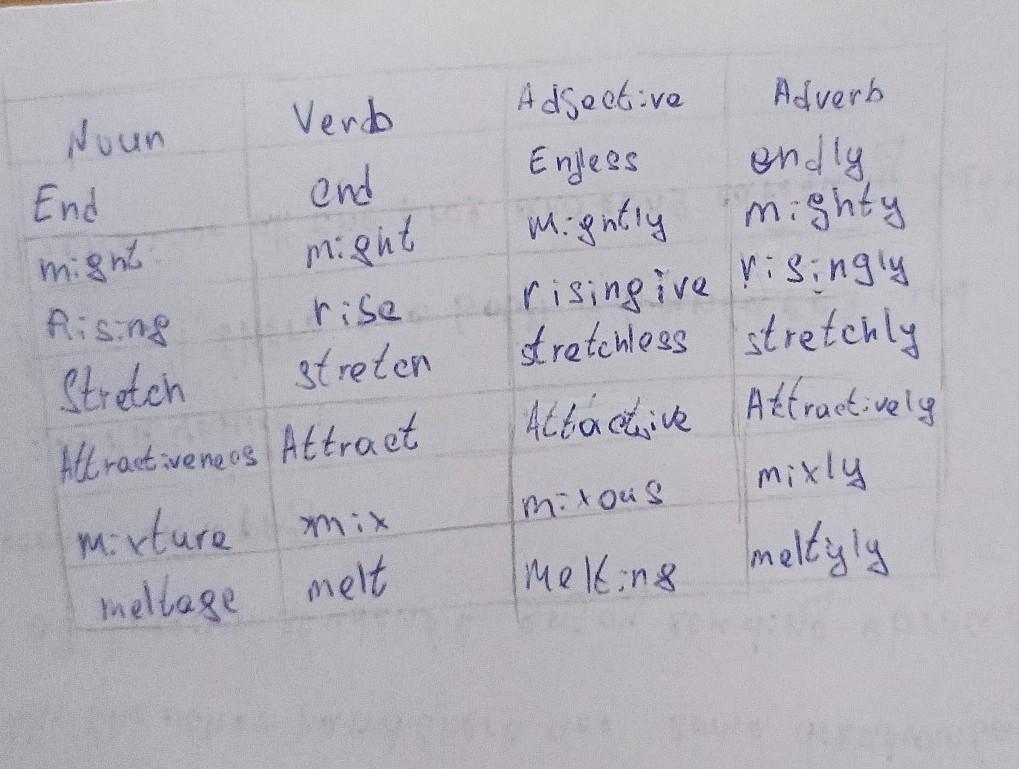 Noun Verb Adjective Adverb
End end Enless endly
might might Mightly mighty
Rising rise risingive risingly
Stretch stretch stretchless stretchly
Attractiveness Attract Attactive Attractively
Mixture mix mixous mixly
meltage melt Melting meltyly